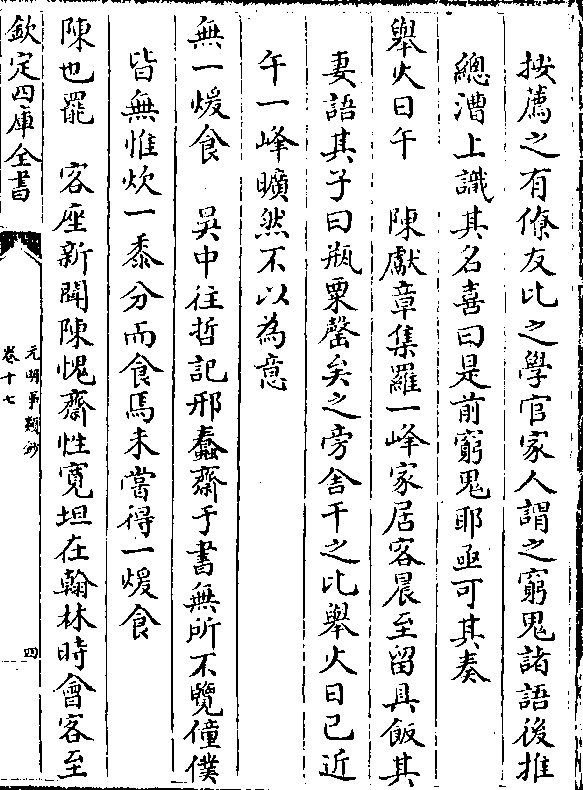 按薦之有僚友比之學官家人謂之窮鬼諸語後推
總漕上識其名喜曰是前窮鬼耶亟可其奏
舉火日午　陳獻章集羅一峰家居客晨至留具飯其
妻語其子曰瓶粟罄矣之旁舍干之比舉火日已近
午一峰曠然不以為意
無一煖食　吳中往哲記邢蠢齋于書無所不覽僮僕
皆無惟炊一黍分而食焉未嘗得一煖食
陳也罷　客座新聞陳愧齋性寬坦在翰林時會客至
欽定四庫全書
元明事類鈔
卷十七
四